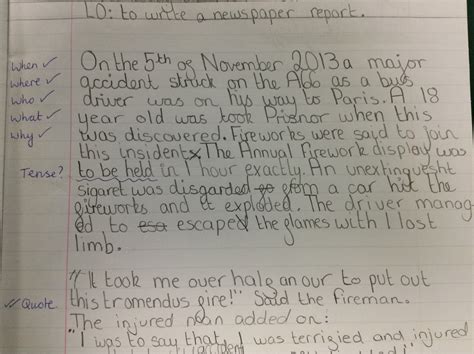 LO: to write a newspaper report.
When ✓ On the 5th og November 2013 a major
where ✓ accident struck on the A10 as a bus
who ✓ driver was on his way to Paris. A 18
what ✓ year old was took Prisnor when this
why ✓ was discovered. Fireworks were said to join
this insident. The Annual Firework display was
Tense? to be held in 1 hour exactly. An unextinguesht
sigaret was disgarded from a car hit the
gireworks and it exploded. The driver manag-
ed to escape the glames with 1 lost
limb.
"It took me over halg an our to put out
✓✓ Quote this tromendus gire!" Said the fireman.
The injured man added on:
"I was to say that I was terrigied and injured